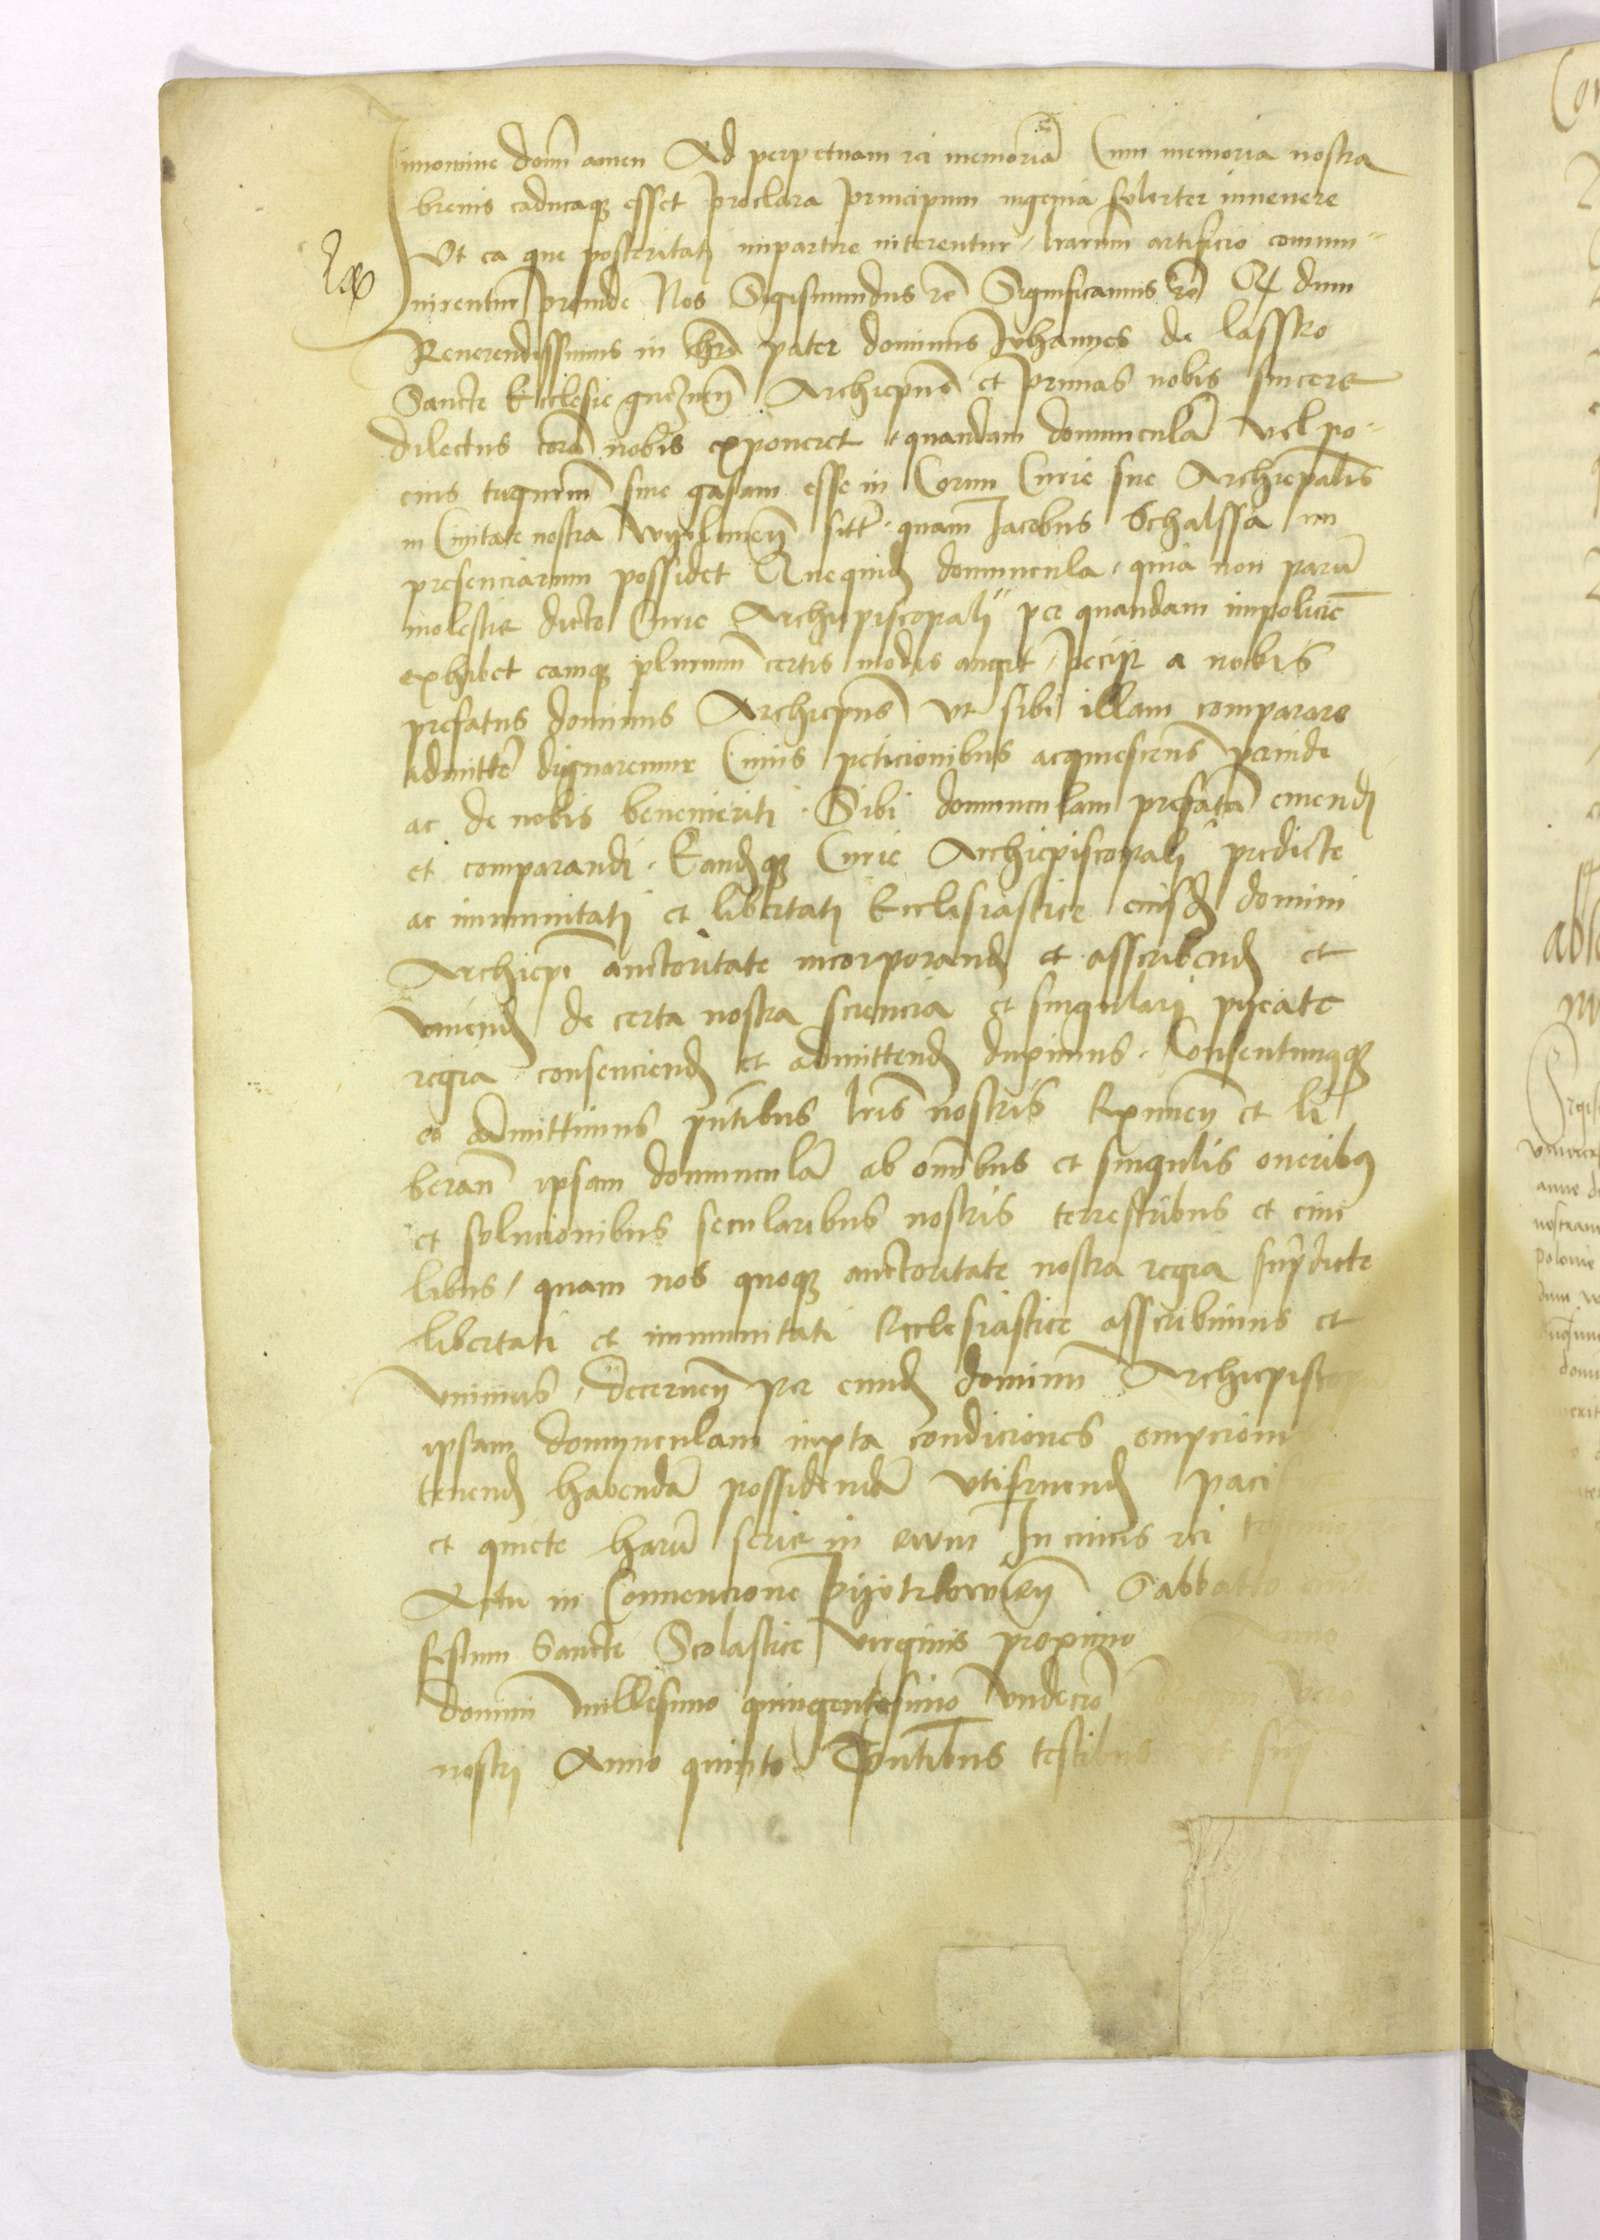 Innomine domi amen Ad perpetuam rei memoriā Cum memoria nostra
brevis caducaqz esset preclara principum ingenia solerter invenere
Ut ea que posteritati impartire niterentur, lrarum artificio commu-
nirentur proinde Nos Sigismundus rē Significamus rē Q dum
Reverendissimus in chrō pater dominus Johannes de lassko
Sancte Ecclesie gneznen Archiepus et primas nobis sincere
dilectus corā nobis exponeret quandam domunculā vel po-
cius tugurrm sive gasam esse in Corum Curie sue Archiepalis
in Civitate nostra Wyelunen sittā quam Jacobus Schalssa im
presenciarum possidet Quequid domuncula, quia non parū
molestie dicte Curie Archiepiscopali per quandam impoliciē
exhibet eamqz plurimum certis modis angit, peciit a nobis
prefatus dominus Archiepus ut sibi illam comparare
admittere dignaremur Cuius peticionibus acquiescens perinde
ac de nobis benemeriti Sibi domunculam prefatā emendi
et comparandi Eandqz Curie Archiepiscopali predicte
ac immunitati et libertati Ecclesiastice eiusd domini
Archiepi auctoritate incorporand et asscribend et
Uniend de certa nostra sciencia et singulari pietate
regia consenciend et admittend duximus Consentimusqz
et admittimus pntibus lris nostris Eximen et li
beran ipsam domunculā ab omibus et singulis oneribus
et solucionibus secularibus nostris terrestribus et civi
libus, quam nos quoqz auctoritate nostra regia supradicte
libertati et immunitati Ecclesiastice asscribimus et
Unimus, decernen per eund dominum Archiepiscop
ipsam domunculam iuxta condiciones empcionis
tenend habendā possidendā utifruend paci
et quiete harū serie in evum In cuius rei testimo
Actu in Convencione Pyotrkovien Sabbatto
festum Sancte Scolastice virginis proximo Anno
domini millesimo quingentesimo undecimo vero
nostri Anno quinto pntibus testibus ut sup